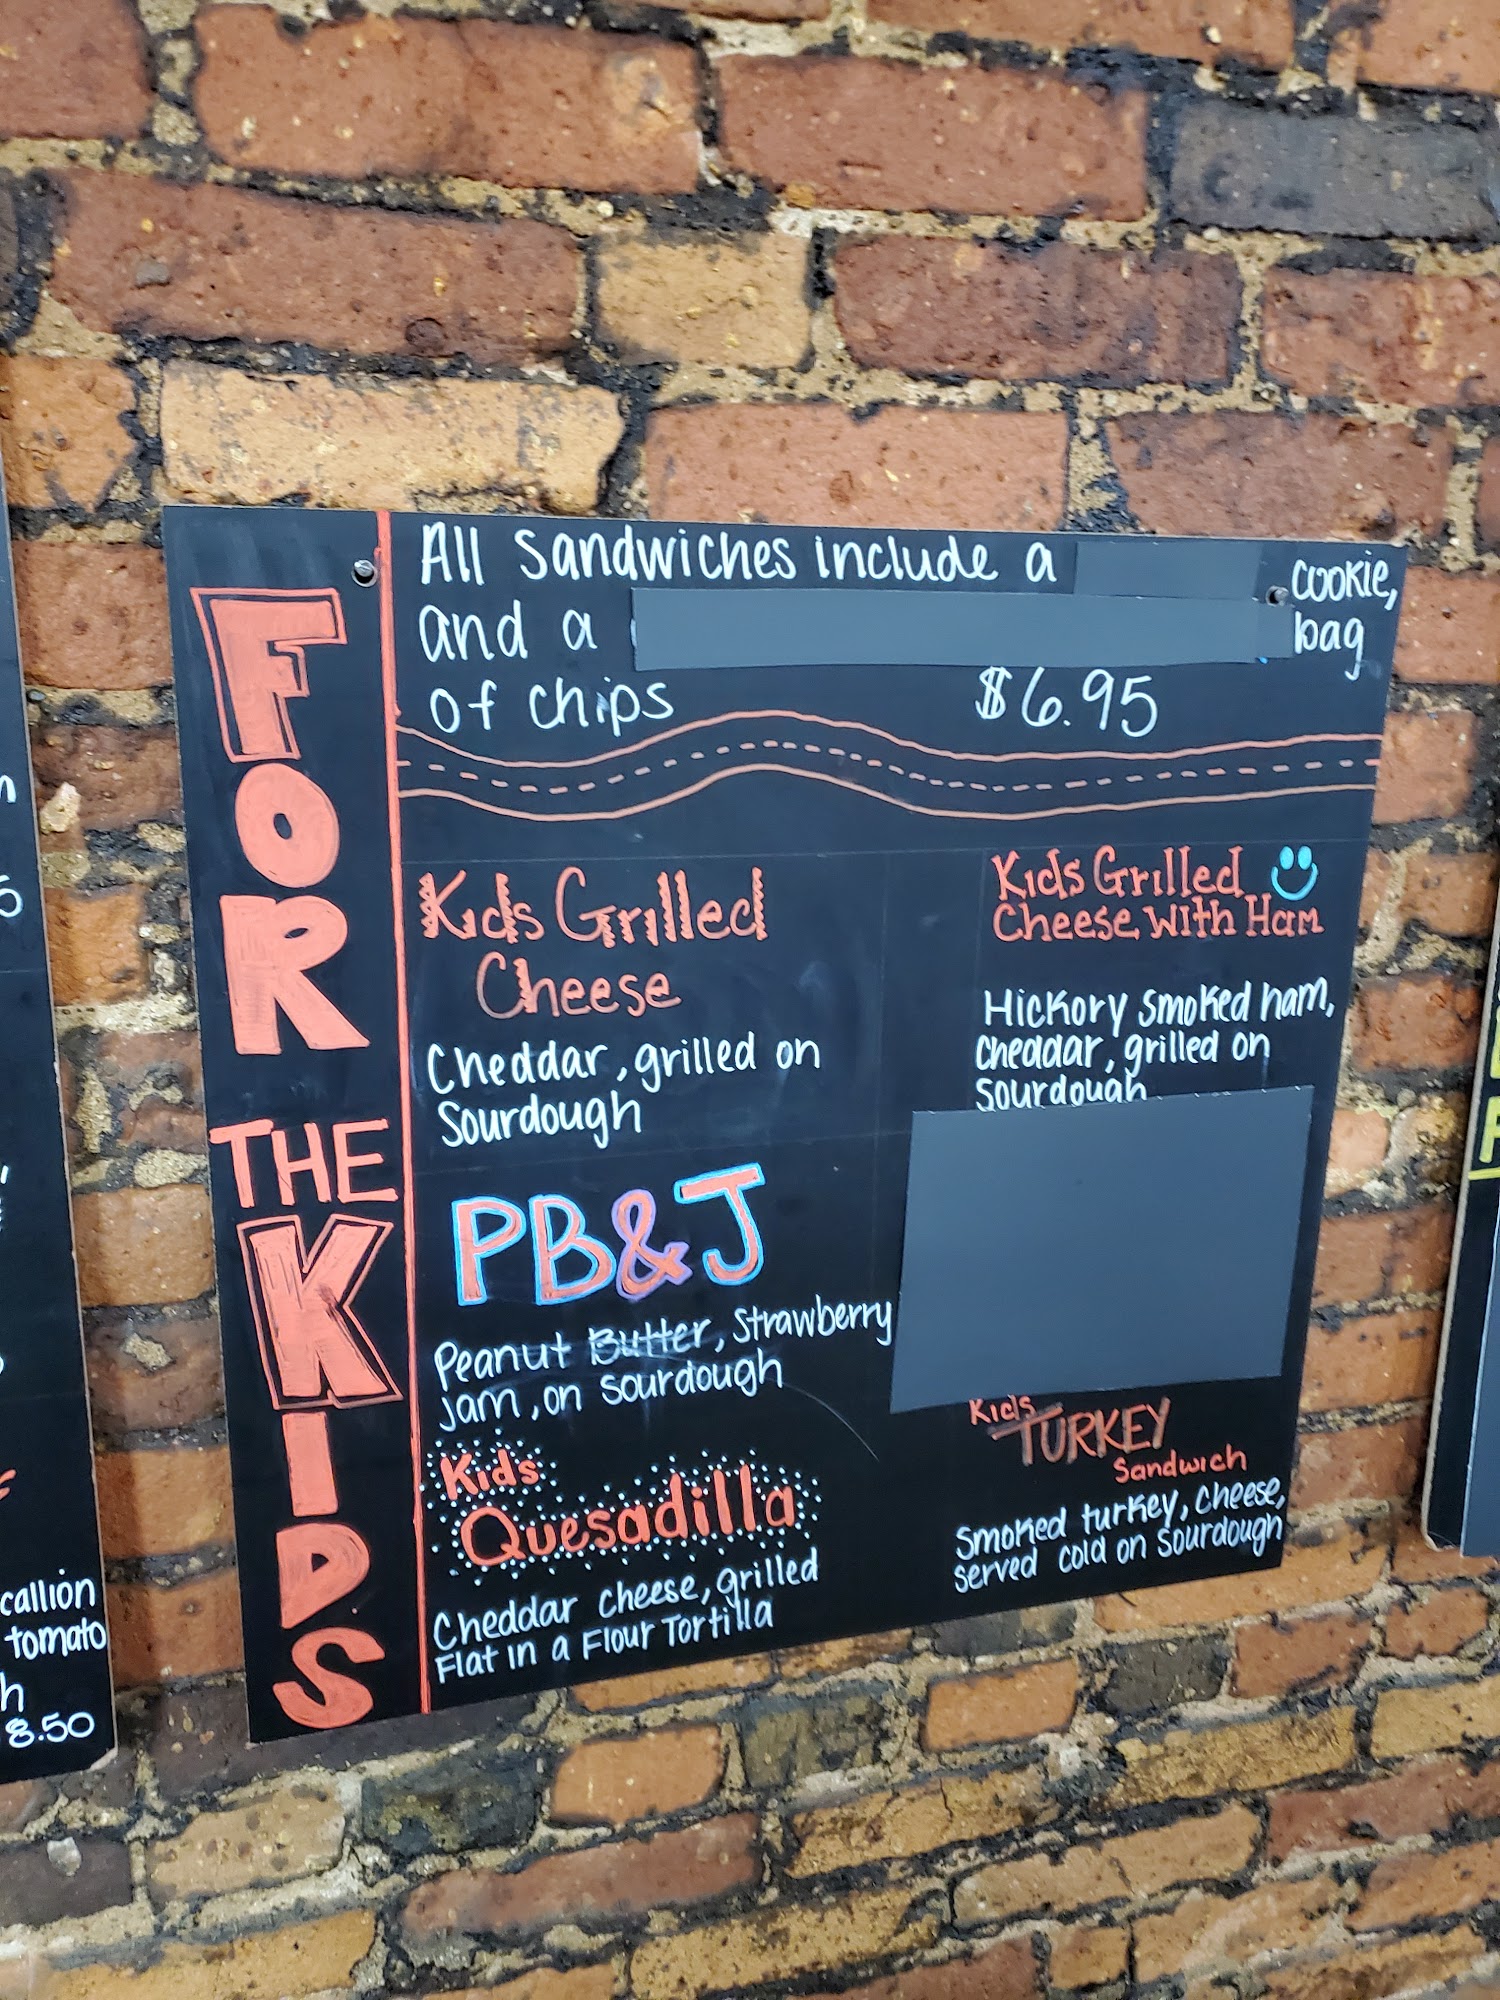 FOR
THE
KIDS
All Sandwiches include a cookie,
and a bag
of chips $6.95
Kids Grilled
Cheese
Cheddar, grilled on
Sourdough
PB&J
Peanut Butter, Strawberry
jam, on sourdough
Kids
Quesadilla
Cheddar cheese, grilled
Flat in a Flour Tortilla
Kids Grilled
Cheese with Ham
Hickory smoked ham,
cheddar, grilled on
sourdough
Kids
TURKEY
Sandwich
Smoked turkey, cheese,
served cold on sourdough
tomato
8.50